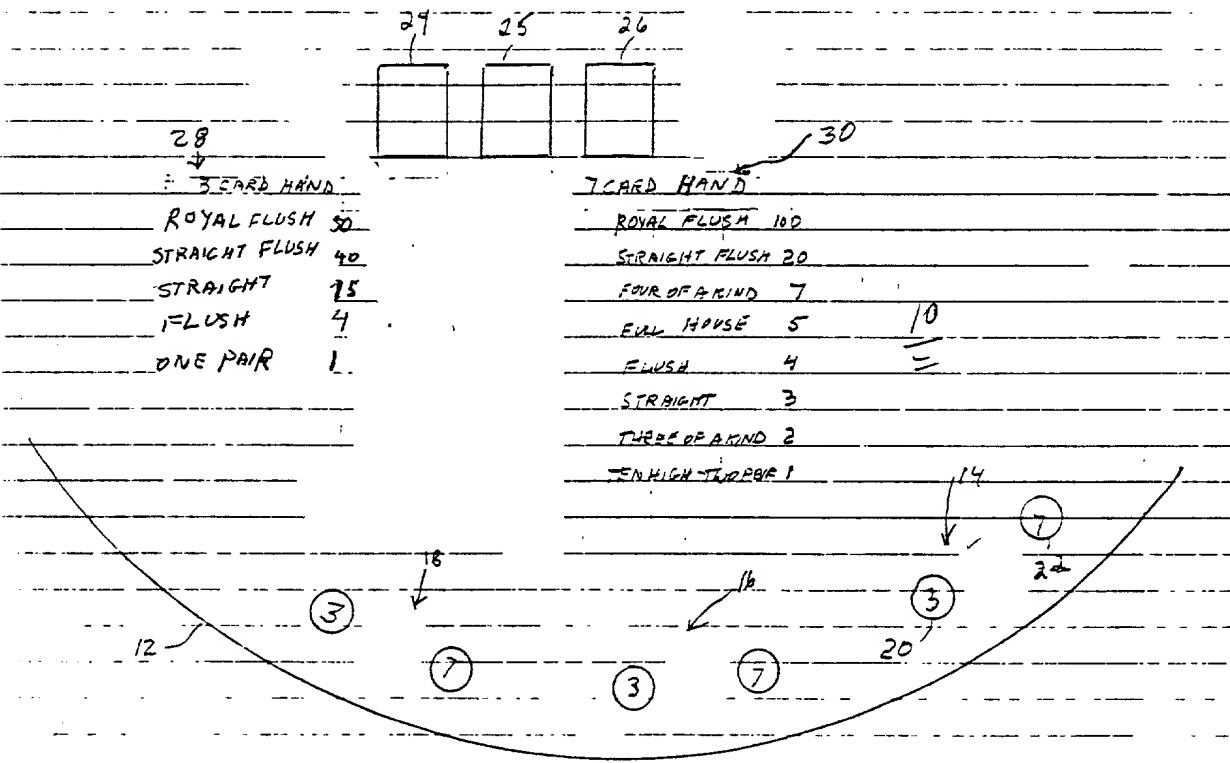 24 25 26
28
30
3 CARD HAND
ROYAL FLUSH 50
STRAIGHT FLUSH 40
STRAIGHT 15
FLUSH 4
ONE PAIR 1
7 CARD HAND
ROYAL FLUSH 100
STRAIGHT FLUSH 20
FOUR OF A KIND 7
FULL HOUSE 5
FLUSH 4
STRAIGHT 3
THREE OF A KIND 2
TEN HIGH TWO PAIR 1
10
14
7
22
18
16
3
3
20
12
7
3
7